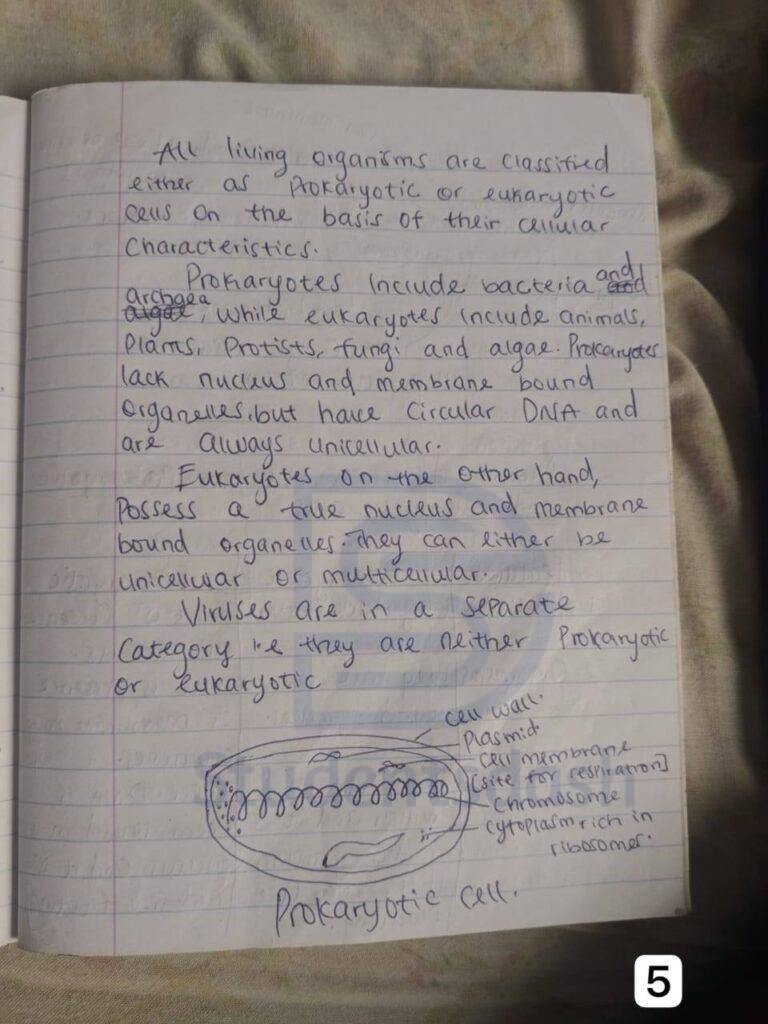 All living organisms are classified
either as Prokaryotic or eukaryotic
cells on the basis of their cellular
Characteristics.
Prokaryotes Include bacteria and
archaea, while eukaryotes include animals,
Plants, Protists, fungi and algae. Prokaryotes
lack nucleus and membrane bound
organelles, but have Circular DNA and
are always unicellular.
Eukaryotes on the other hand,
Possess a true nucleus and membrane
bound organelles. They can either be
unicellular or multicellular.
Viruses are in a separate
Category i.e they are neither Prokaryotic
or eukaryotic
Cell wall.
Plasmid
cell membrane
[site for respiration]
Chromosome
cytoplasm rich in
ribosomes.
Prokaryotic cell.
5